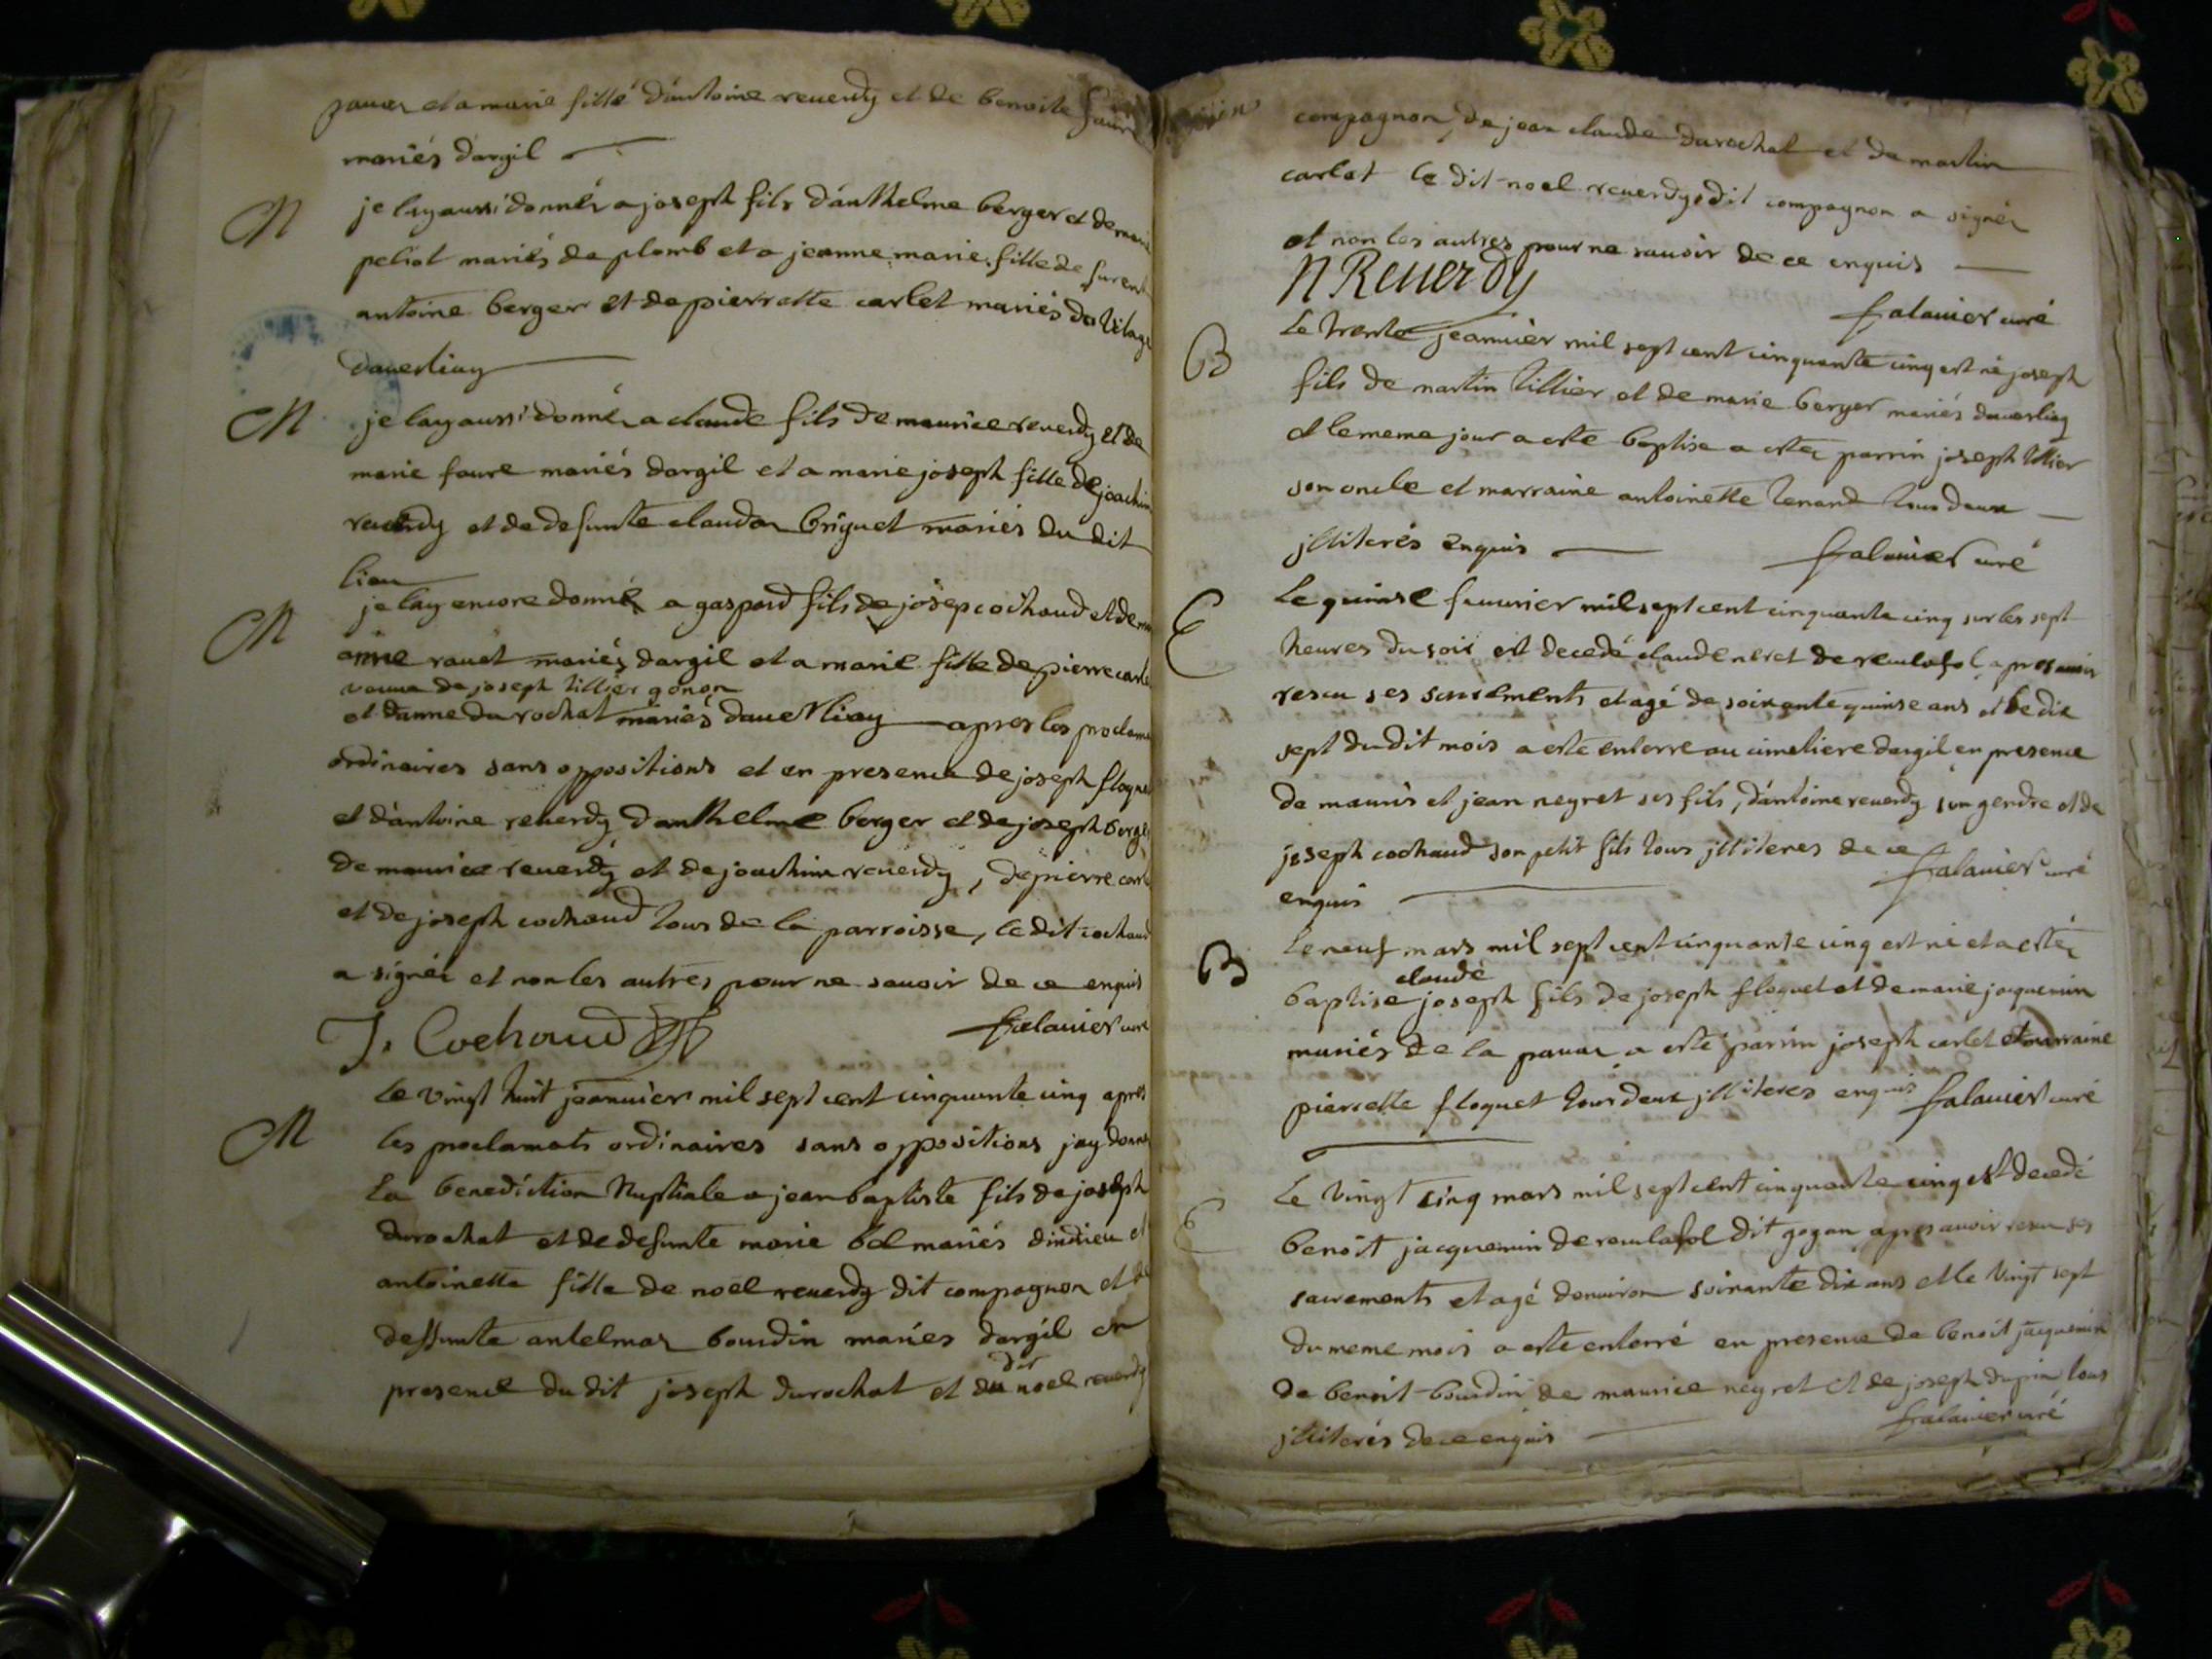 pauaz et a marie fille d'antoine reuerdy et de benoite faure
mariés d'argil
M je lay aussi donnéz a joseph fils d'anthelme berger et de marie
peliot mariés de plomb et a jeanne marie fille de furent
antoine berger et de pierrette carlet mariés du vilage
daverliay
M je lay aussi donnéz a claude fils de maurice reuerdy et de
marie faure mariés dargil et a marie joseph fille de joachim
reuerdy et de defunte claudaz briguet mariés du dit
lieu
M je lay encore donnéz a gaspard fils de josep cochaud et de
anne rauet mariés dargil et a marie fille de pierre carlet
vauue de joseph tillier gonon
et danne durochat mariés daverliay apres les proclamats
ordinaires sans oppositions et en presence de joseph floquet
et d'antoine reuerdy danthelme berger et de joseph berger
de maurice reuerdy et de joachim reuerdy, de pierre carlet
et de joseph cochaud tous de la parroisse, le dit cochaud
a signéz et non les autres pour ne sauoir de ce enquis
J. Cochaud falauier curé
le vingt huit jeanuier mil sept cent cinquante cinq apres
M les proclamats ordinaires sans oppositions jay donné
la benediction Nuptiale a jean baptiste fils de joseph
durochat et de defunte marie bel mariés dindrieu et
antoinette fille de noel reuerdy dit compagnon et de
deffunte antelmaz bourdin maries dargil en
dit
presence du dit joseph durochat et du noel reuerdy
compagnon, de jean claude durochat et de martin
carlet le dit noel reuerdy dit compagnon a signéz
et non les autres pour ne sauoir de ce enquis
N Reuerdy
falauier curé
B le trente jeanuier mil sept cent cinquante cinq est né joseph
fils de martin tillier et de marie berger mariés daverliay
et le meme jour a este baptise a estéz parrin joseph tillier
son oncle et marraine antoinette tenand tous deux
jlliterés enquis falauier curé
E le quinse feuurier mil sept cent cinquante cinq sur les sept
heures du soir est decedé claude neret de reculafol apres auoir
resçu ses sacrements et agé de soixante quinse ans et le dix
sept du dit mois a esté enterre au cimetiere dargil en presence
de mauris et jean neyret ses fils, d'antoine reuerdy son gendre et de
joseph cochaud son petit fils tous jlliteres de ce
enquis falauier curé
B le neuf mars mil sept cent cinquante cinq est né et a estéz
claude
baptise joseph fils de joseph floquet et de marie jacquemin
mariés de la pauaz a esté parrin joseph carlet et marraine
pierrette floquet tous deux jlliteres enquis falauier curé
E le vingt cinq mars mil sept cent cinquante cinq est decedé
benoit jacquemin de reculafol dit gogan apres auoir resçu ses
sacrements et agé denuiron soixante dix ans et le vingt sept
du meme mois a esté enterré en presence de benoit jacquemin
de benoit bourdin de maurice neyret et de joseph dupin tous
jlliterés de ce enquis falauier curé